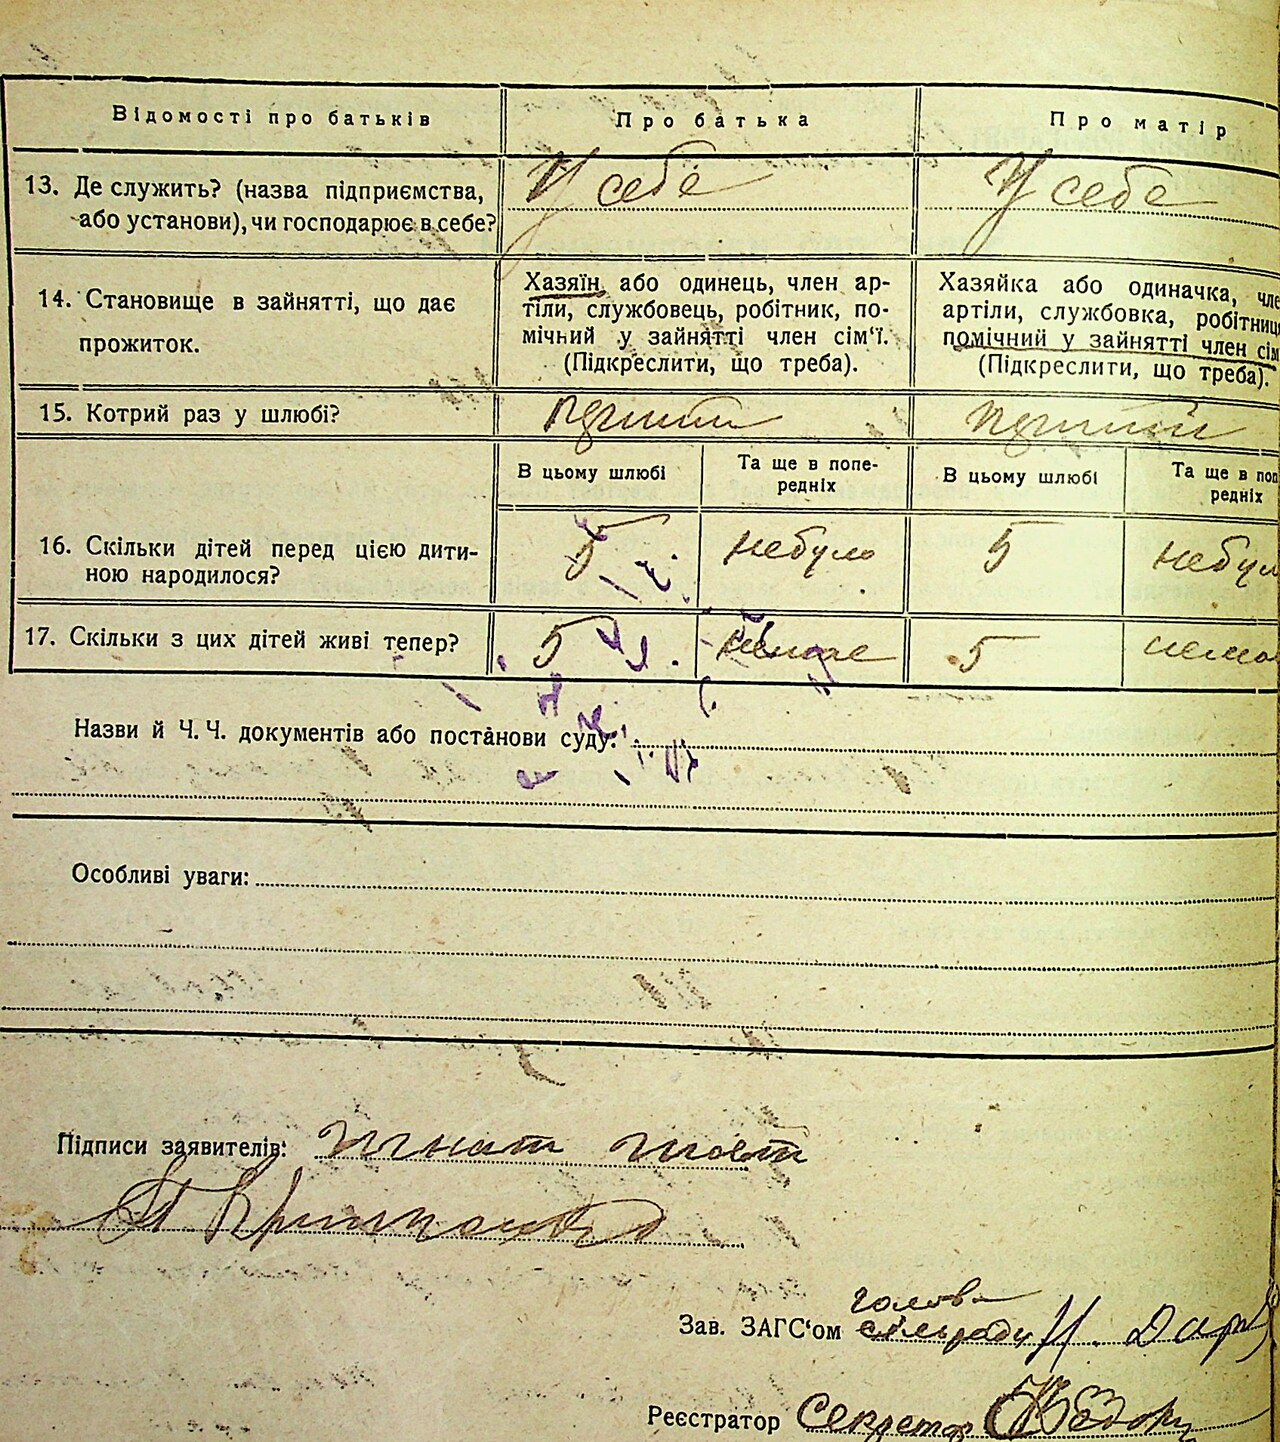 Відомості про батьків Про батька Про матір
13. Де служить? (назва підприємства, У себе У себе
або установи), чи господарює в себе?
14. Становище в зайнятті, що дає
прожиток.
Хазяїн або одинець, член ар-
тіли, службовець, робітник, по-
мічний у зайнятті член сім'ї.
(Підкреслити, що треба).
Хазяйка або одиначка, чле
артіли, службовка, робітниц
помічний у зайнятті член сім
(Підкреслити, що треба).
15. Котрий раз у шлюбі?
В цьому шлюбі Та ще в попе- В цьому шлюбі Та ще в поп
редніх редніх
16. Скільки дітей перед цією дити- 5 небуло 5 небул
ною народилося?
17. Скільки з цих дітей живі тепер? 5 немає 5 нема
Назви й Ч. Ч. документів або постанови суду:
Особливі уваги:
Підписи заявителів: Игнат
голова
Зав. ЗАГС'ом сільради
Реєстратор Секретар